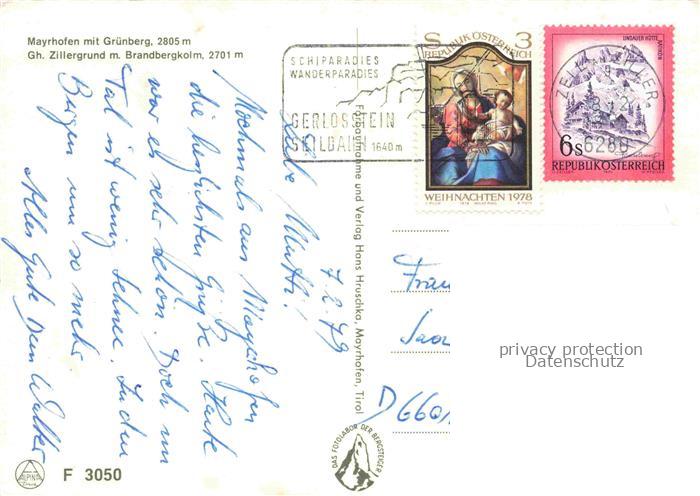 Mayrhofen mit Grünberg, 2805 m
Gh. Zillergrund m. Brandbergkolm, 2701 m
SCHIPARADIES
WANDERPARADIES
GERLOSSTEIN
SKILBAHN 1640 m
S 3
REPUBLIK ÖSTERREICH
WEIHNACHTEN 1978
LINDAUER HÜTTE
6s
REPUBLIK ÖSTERREICH
ZELL ZILLER
6280
7.2.79
Liebe Mutti!
Nochmals aus Mayrhofen
die herzlichsten Grüße. Heute
war es sehr schön. Doch im
Tal ist wenig Schnee. In den
Bergen um so mehr.
Alles Gute Dein Walter
Farbaufnahme und Verlag Hans Hruschka, Mayrhofen, Tirol
Frau
Saar
D 6601
privacy protection
Datenschutz
DAS FOTOLABOR DER BERGSTEIGER
ALPINA
F 3050